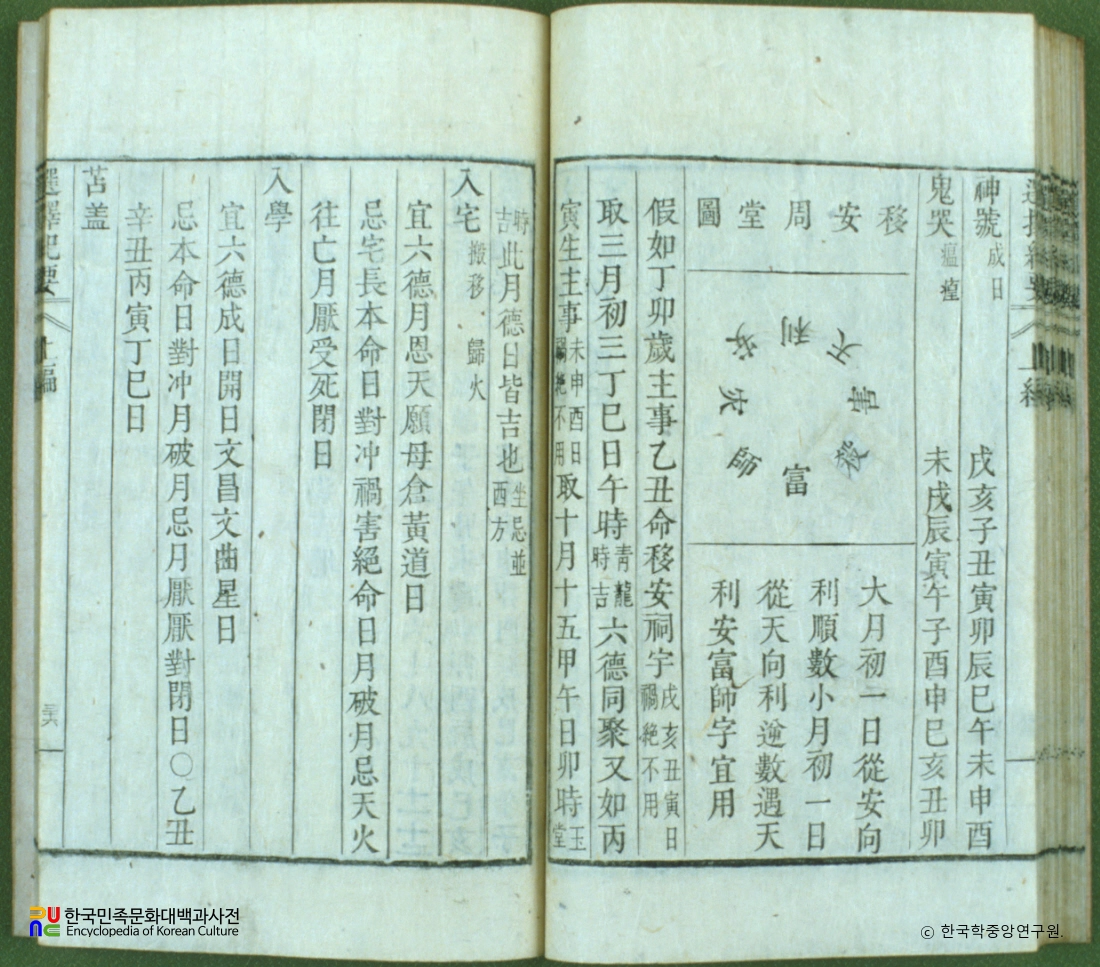 神號成日 戌亥子丑寅卯辰巳午未申酉
鬼哭瘟瘽 未戌辰寅午子酉申巳亥丑卯
移安周堂圖
天
利
安
災
師
富
殺
害
大月初一日從安向
利順數小月初一日
從天向利逆數遇天
利安富師字宜用
假如丁卯歲主事乙丑命移安祠宇戊亥丑寅日禍絶不用
取三月初三丁巳日午時靑龍時吉六德同聚又如丙
寅生主事未申酉日禍絶不用取十月十五甲午日卯時玉堂
時吉此月德日皆吉也坐忌並西方
入宅搬移歸火
宜六德月恩天願母倉黃道日
忌宅長本命日對冲禍害絕命日月破月忌天火
往亡月厭受死閉日
入學
宜六德成日開日文昌文曲星日
忌本命日對冲月破月忌月厭厭對閉日〇乙丑
辛丑丙寅丁巳日
苫盖
選擇紀要 上編
한국민족문화대백과사전
Encyclopedia of Korean Culture
© 한국학중앙연구원.